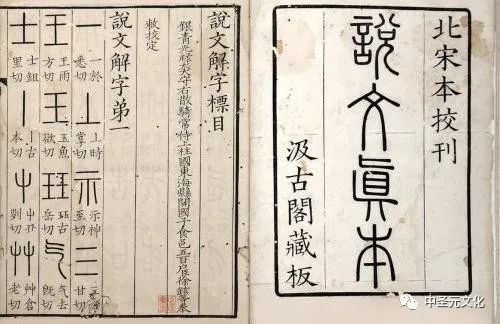 北宋本校刊
說文眞本
汲古閣藏板
說文解字標目
銀青光祿大夫守右散騎常侍上柱國東海縣開國子食邑五百戶臣徐鉉等奉
敕校定
說文解字弟一
一 一於悉切 丄 上時掌切 示 示神至切 三 甘切
王 王雨方切 王 玉魚欲切 玨 玨古岳切 气 气去旣切
士 士鉏里切 丨 丨古本切 屮 屮丑列切 艸 艸倉老切
中圣元文化